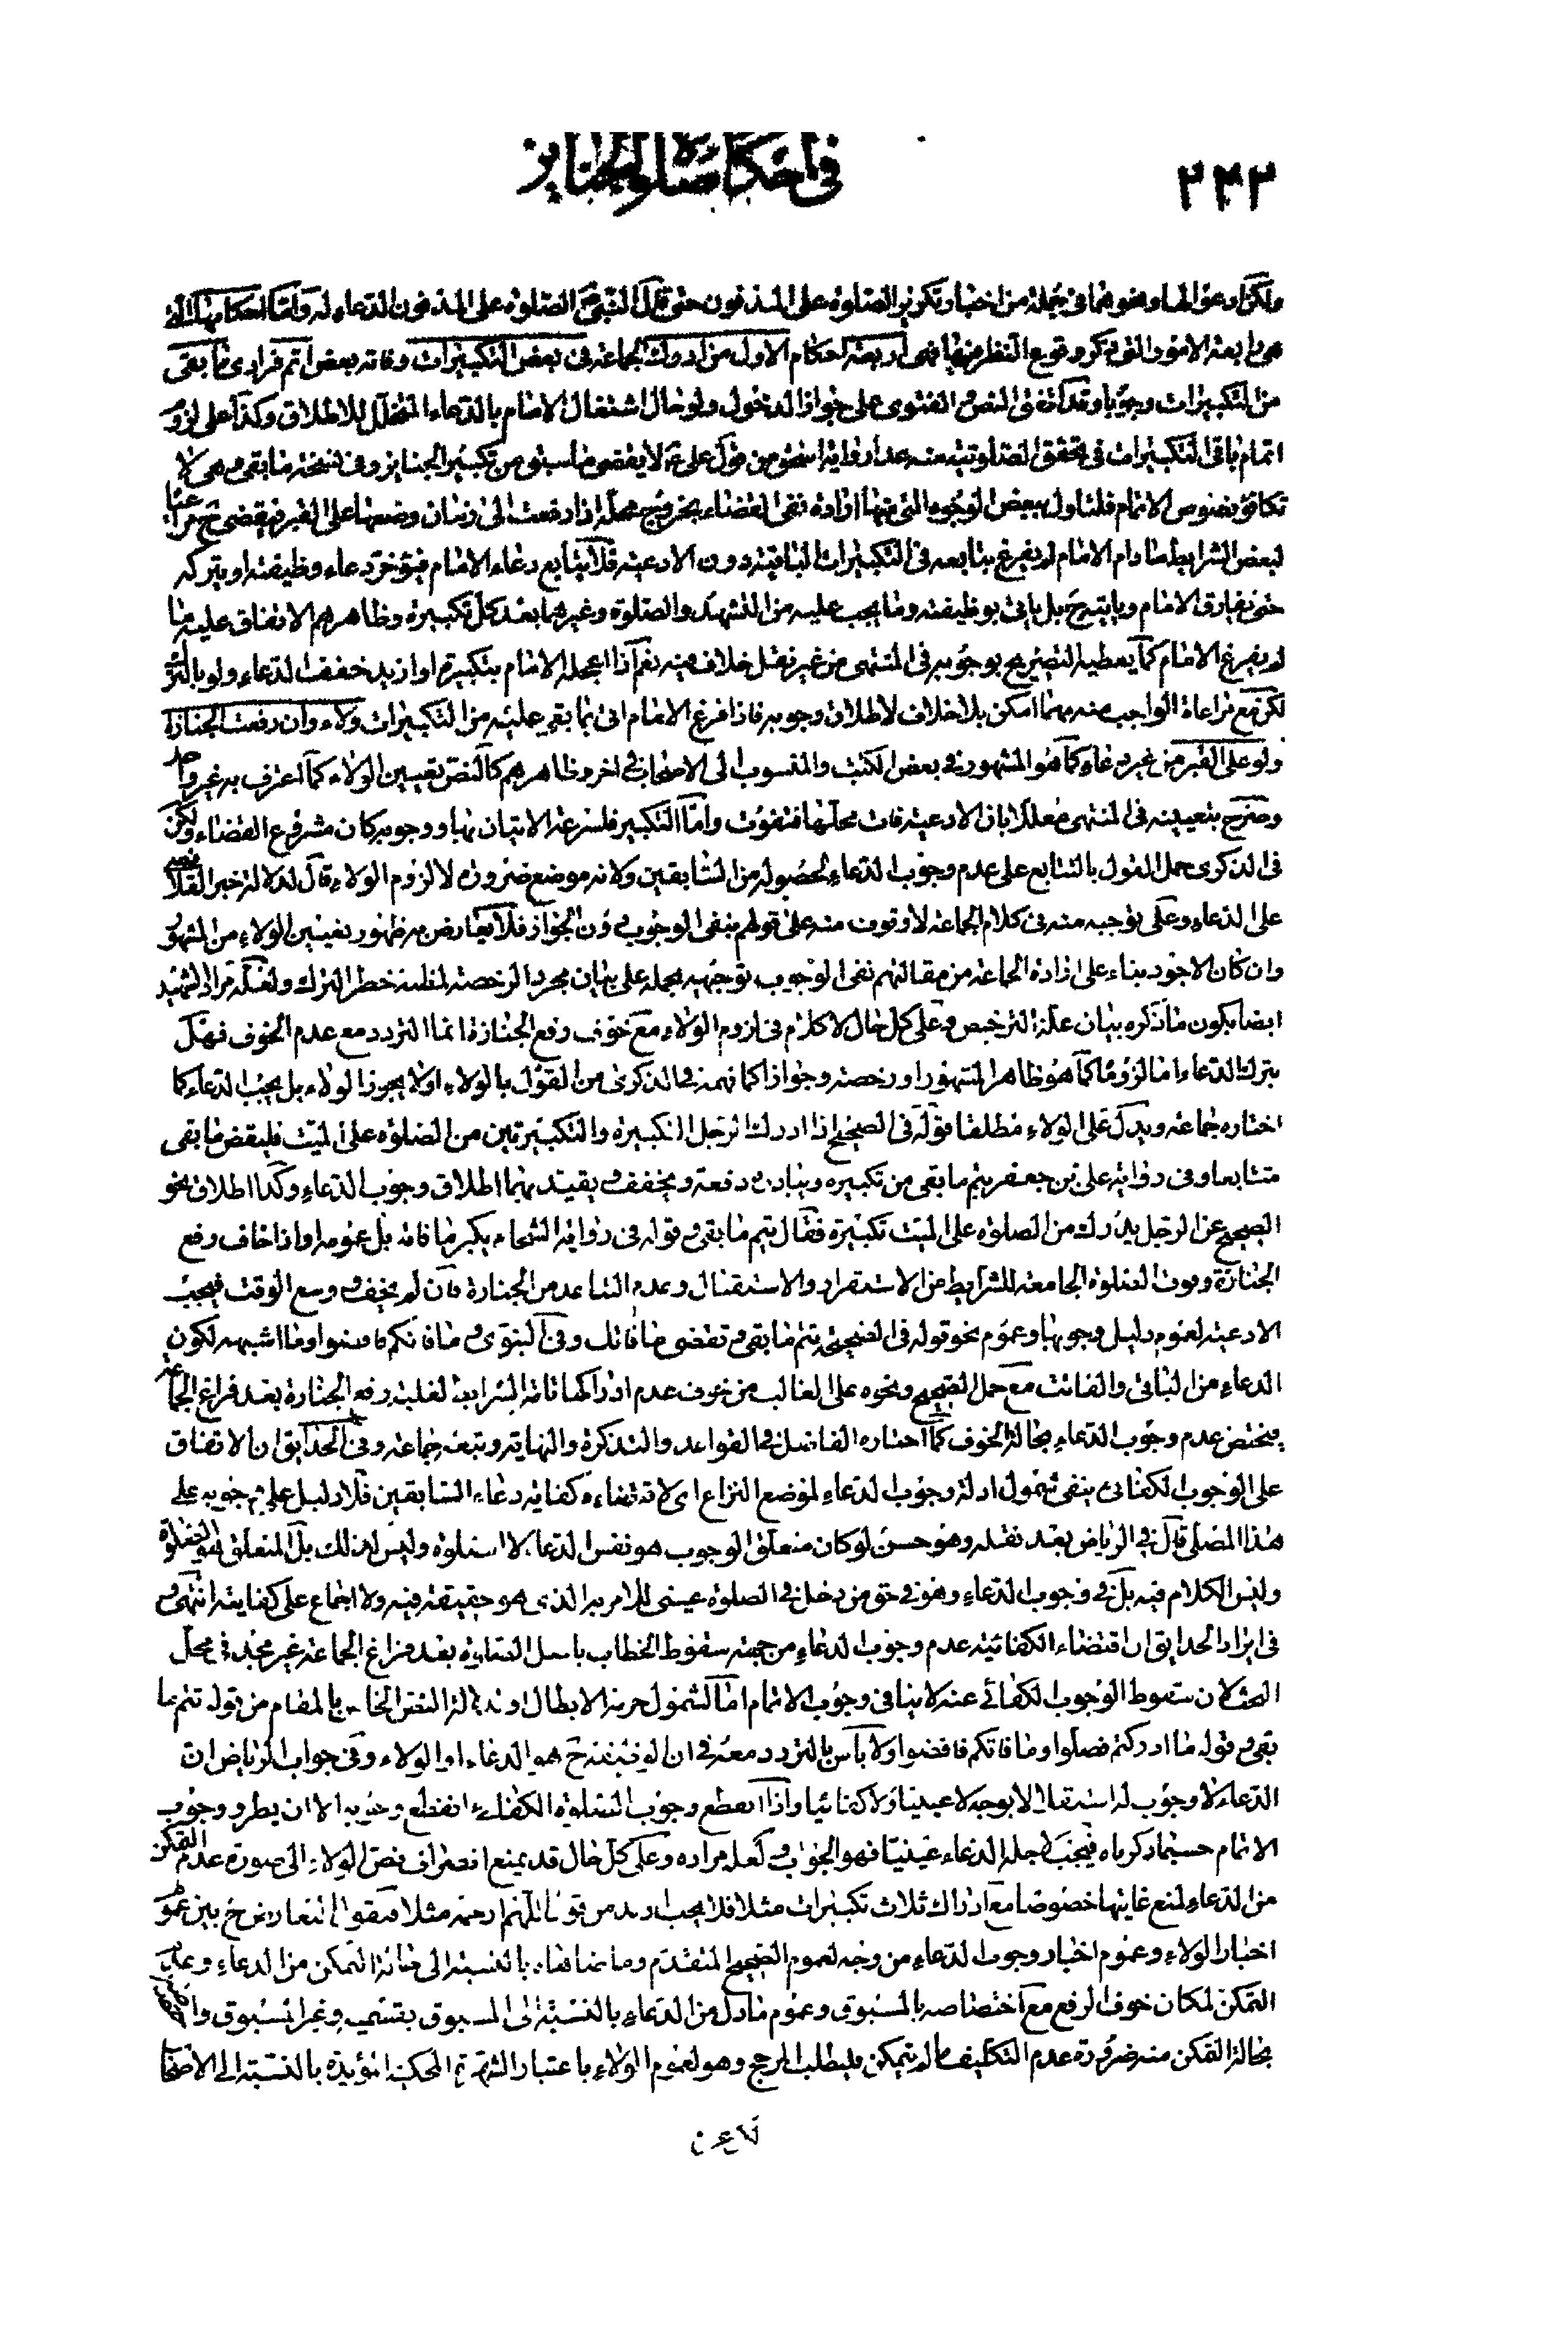 ٢٤٣
في احكام صلوة الجنايز
ولكن ادعوا لها ونحوهما في جملة من اخبار تكرير الصلوة على المدفون حتى قال الصلوة على المدفون الدعاء له واما احكامها
اربعة احكام الاول من ادرك الجماعة في بعض التكبيرات وفاته بعض اتم فرادى ما بقى
من التكبيرات وجوبا وقد النص و الفتوى على جواز الدخول ولو حال اشتغال الامام بالدعاء للاطلاق وكذا على لزوم
اتمام باقي التكبيرات في تحقق الصلوتية منه عدا رواية اسحق من قول علي ع لا يقضى ما سبق من تكبير الجنايز وفي نسخة ما بقى وهى لا
تكافؤ نصوص الاتمام فلتاول ببعض الوجوه التي منها ارادة نفى القضاء
لبعض الشرايط ما دام الامام لم يفرغ يتابعه في التكبيرات الباقية دون الادعية فلا يتابع دعاء الامام فيؤخر دعاء وظيفته او يتركه
حتى يفارق الامام بل ياتي بوظيفته وما يجب عليه من التشهد والصلوة وغيرهما بعد كل تكبيرة وظاهرهم الاتفاق عليه ما
لم يفرغ الامام كما يعطيه التصريح بوجوبه في المنتهى من غير نقل خلاف فيه نعم اذا اعجله الامام بتكبيرة او ازيد خفف الدعاء ولو بالترك
لكن مع مراعاة الواجب منه مهما امكن بلا خلاف لاطلاق وجوبه فاذا فرغ الامام اتى بما بقى عليه من التكبيرات ولاء وان رفعت الجنازة
ولو على القبر من غير دعاء كما هو المشهور في بعض الكتب والمنسوب الى الاصحاب في اخر وظاهرهم كالنص تعيين الولاء كما اعترف به غير واحد
وصرح بتعيينه في المنتهى معللا بان الادعية فات محلها فتفوت واما التكبير فلسرعة الاتيان بها ووجوبه كان مشروع القضاء ولكن
في الذكرى حمل القول بالتتابع على عدم وجوب الدعاء لحصوله من السابقين ولانه موضع ضرورة لا لزوم الولاء قال لدلالة خبر القلانسي
على الدعاء وعلى توجيه منه في كلام الجماعة لا وقوف منه على قولهم بنفى الوجوب دون الجواز فلا يعارض به ظهور تعيين الولاء من المشهور
وان كان الاجود بناء على ارادة الجماعة من مقالتهم نفى الوجوب توجيهه بحمله على بيان مجرد الرخصة لمظنة خطر الترك ولعله مراد الشهيد
ايضا بكون ما ذكره بيان علة الترخيص وعلى كل حال لا كلام في لزوم الولاء مع خوف رفع الجنازة انما التردد مع عدم الخوف فهل
يترك الدعاء اما لزوما كما هو ظاهر المشهور او رخصة وجوازا كما فهمه في الذكرى من القول بالولاء او لا يجوز الولاء بل يجب الدعاء كما
اختاره جماعة ويدل على الولاء مطلقا قوله في الصحيح اذا ادرك الرجل التكبيرة والتكبيرتين من الصلوة على الميت فليقض ما بقى
متتابعا وفي رواية علي بن جعفر يتم ما بقى من تكبيره ويبادر دفعة ويخفف و يقيد بهما اطلاق وجوب الدعاء وكذا اطلاق نحو
الصحيح عن الرجل يدرك من الصلوة على الميت تكبيرة فقال يتم ما بقى و قوله في رواية الشحام يكبر ما فاته بل عمومه او اذا خاف رفع
الجنازة وفوت الصلوة الجامعة للشرايط من الاستقرار والاستقبال وعدم التباعد من الجنازة فان لم يخف و وسع الوقت فيجب
الادعية لعموم دليل وجوبها وعموم نحو قوله في الصحيح يتم ما بقى و تقضى ما فاتك وفي النبوى و ما فاتكم فاقضوا وما اشبهه لكون
الدعاء من الباقي والفائت مع حمل الصحيح ونحوه على الغالب من خوف عدم ادراكها تامة الشرايط لغلبة رفع الجنازة بعد فراغ الجماعة
فيختص عدم وجوب الدعاء بحالة الخوف كما اختاره الفاضل في القواعد والتذكرة والنهاية وتبعه جماعة وفي الحدايق ان الاتفاق
على الوجوب الكفائي ينفي شمول ادلة وجوب الدعاء لموضع النزاع اى لاقتضاءه كفاية دعاء السابقين فلا دليل على وجوبه على
هذا المصلى قال في الرياض بعد نقله وهو حسن لو كان متعلق الوجوب هو نفس الدعاء لا الصلوة وليس كذلك بل المتعلق هو الصلوة
وليس الكلام فيه بل في وجوب الدعاء وهو في حق من دخل في الصلوة عيني للامر به الذى هو حقيقة فيه ولا اجماع على كفايته انتهى و
في ايراد الحدايق ان اقتضاء الكفائية عدم وجوب الدعاء من جهة سقوط الخطاب باصل الصلوة بعد فراغ الجماعة غير مجد في محل
البحث لان سقوط الوجوب الكفائي عنه لا ينافي وجوب الاتمام اما لشمول حرمة الابطال او لدلالة النص الخاص بالمقام من قوله تتم ما
بقى و قوله ما ادركتم فصلوا وما فاتكم فاقضوا ولا باس بالتردد معه في ان الوظيفة ح هو الدعاء او الولاء وفي جواب الرياض ان
الدعاء لا وجوب له استقلالا بوجه لا عينيا ولا كفائيا واذا انقطع وجوب الصلوة الكفائي انقطع وجوبه الا ان يطرء وجوب
الاتمام حسبما ذكرناه فيجب لاجله الدعاء عينيا فهو الجواب و لعله مراده وعلى كل حال قد يمنع انصراف نص الولاء الى صورة عدم التمكن
من الدعاء لمنع غلبتها خصوصا مع ادراك ثلاث تكبيرات مثلا فلا يجب ازيد من قول اللهم ارحمه مثلا فيقوا التعارض ح بين عموم
اخبار الولاء وعموم اخبار وجوب الدعاء من وجه لعموم الصحيح المتقدم وما ضاهاه بالنسبة الى حالة التمكن من الدعاء وعدم
التمكن لمكان خوف الرفع مع اختصاصه بالمسبوق وعموم ما دل من الدعاء بالنسبة الى المسبوق بقسميه وغير المسبوق
بحالة التمكن منه ضرورة عدم التكليف ما لم يتمكن فليطلب المرجح وهو لعموم الولاء باعتبار الشهرة المحكية المؤيدة بالنسبة الى الاصحاب